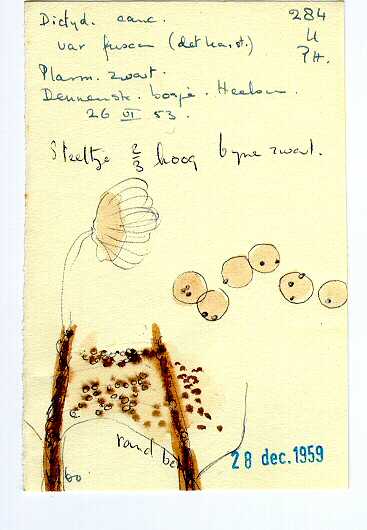 Dictyd. canc.
284
var fusca (det. karst.)
H
PH.
Plasm. zwart.
Dennenstr. bosje. Heelsum.
26 VI 53.
Steeltje 2/3 hoog bijna zwart.
rand be
28 dec. 1959
60